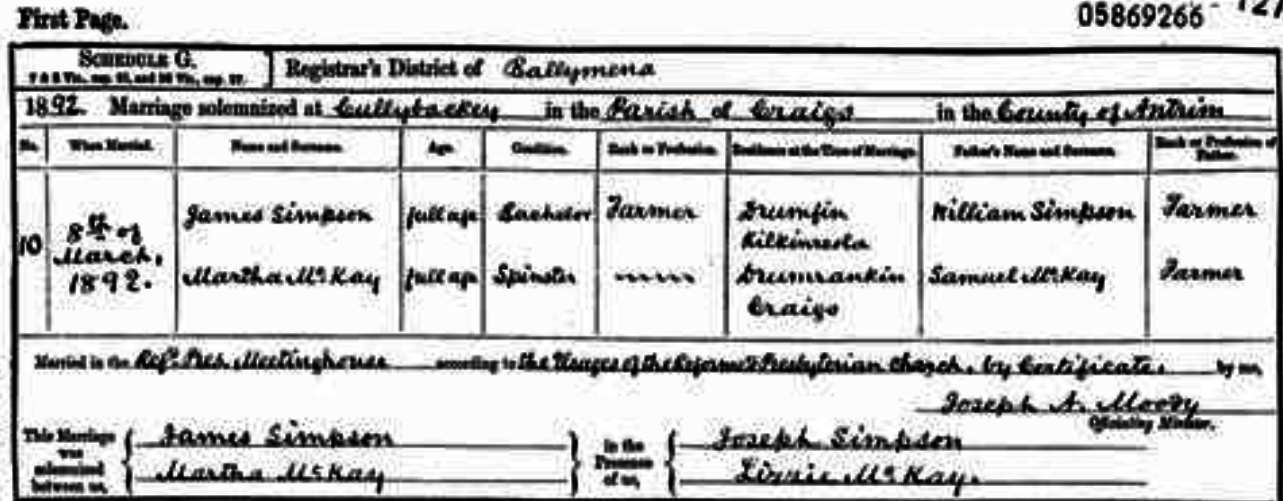 First Page.
05869266 127
SCHEDULE G.
Registrar's District of Ballymena
1892. Marriage solemnized at Cullybackey in the Parish of Craigs in the County of Antrim
No. When Married. Name and Surname. Age. Condition. Rank or Profession. Residence at the Time of Marriage. Father's Name and Surname. Rank or Profession of Father.
10
8th of March, 1892.
James Simpson full age Bachelor Farmer Drumfin William Simpson Farmer
Martha McKay full age Spinster Drumrankin Craigs Samuel McKay Farmer
Married in the Ref. Pres. Meetinghouse according to the Usages of the Reformed Presbyterian Church, by Certificate, by me,
Joseph A. Moody
Officiating Minister.
This Marriage was solemnized between us,
James Simpson
Martha McKay
in the Presence of us,
Joseph Simpson
Lizzie McKay.